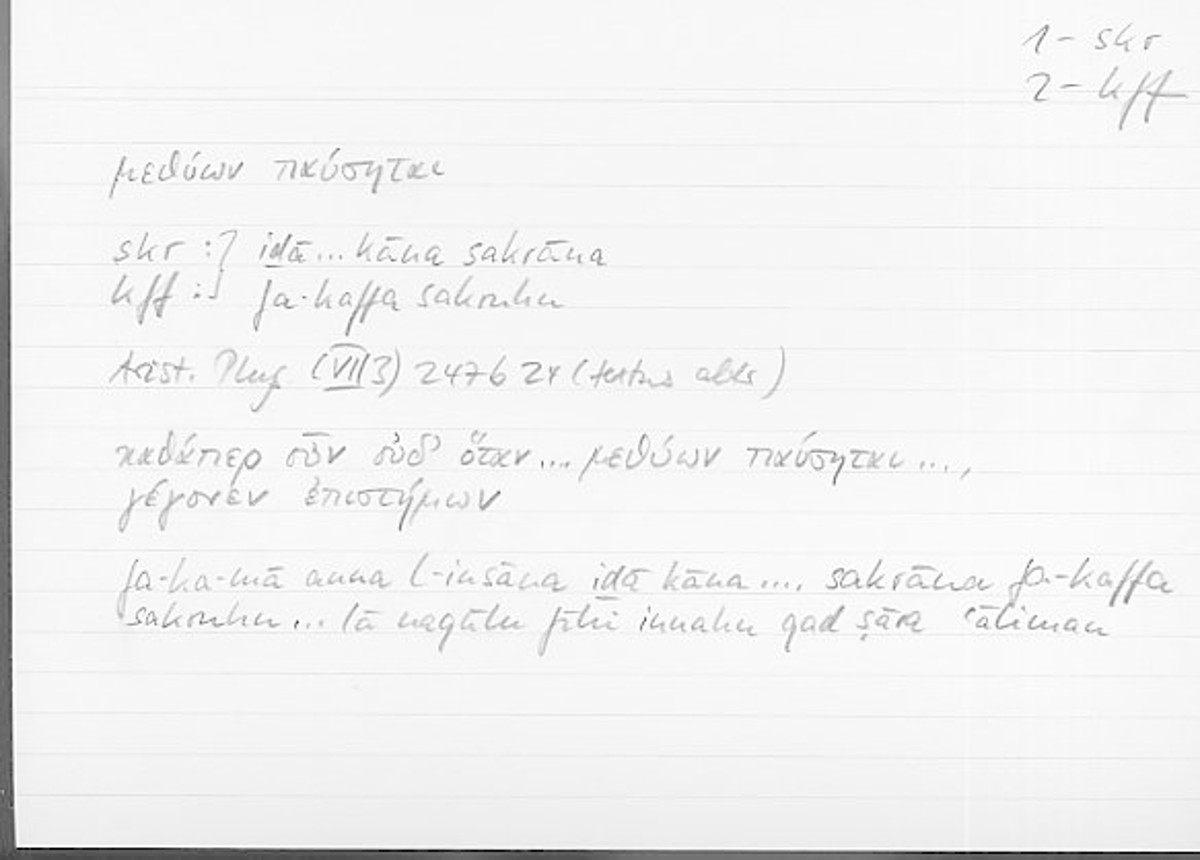 1 - skr
2 - kff
μεθύων παύσηται
skr :] iḏā ... kāna sakrāna
kff :] fa-kaffa sakruhu
Arist. Phys (VII 3) 247b 24 (textus alter)
καθάπερ οὖν οὐδ' ὅταν ... μεθύων παύσηται ...,
γέγονεν ἐπιστήμων
fa-ka-mā anna l-insāna iḏā kāna ... sakrāna fa-kaffa
sakruhu ... lā naqūlu fīhi innahu qad ṣāra ʿāliman